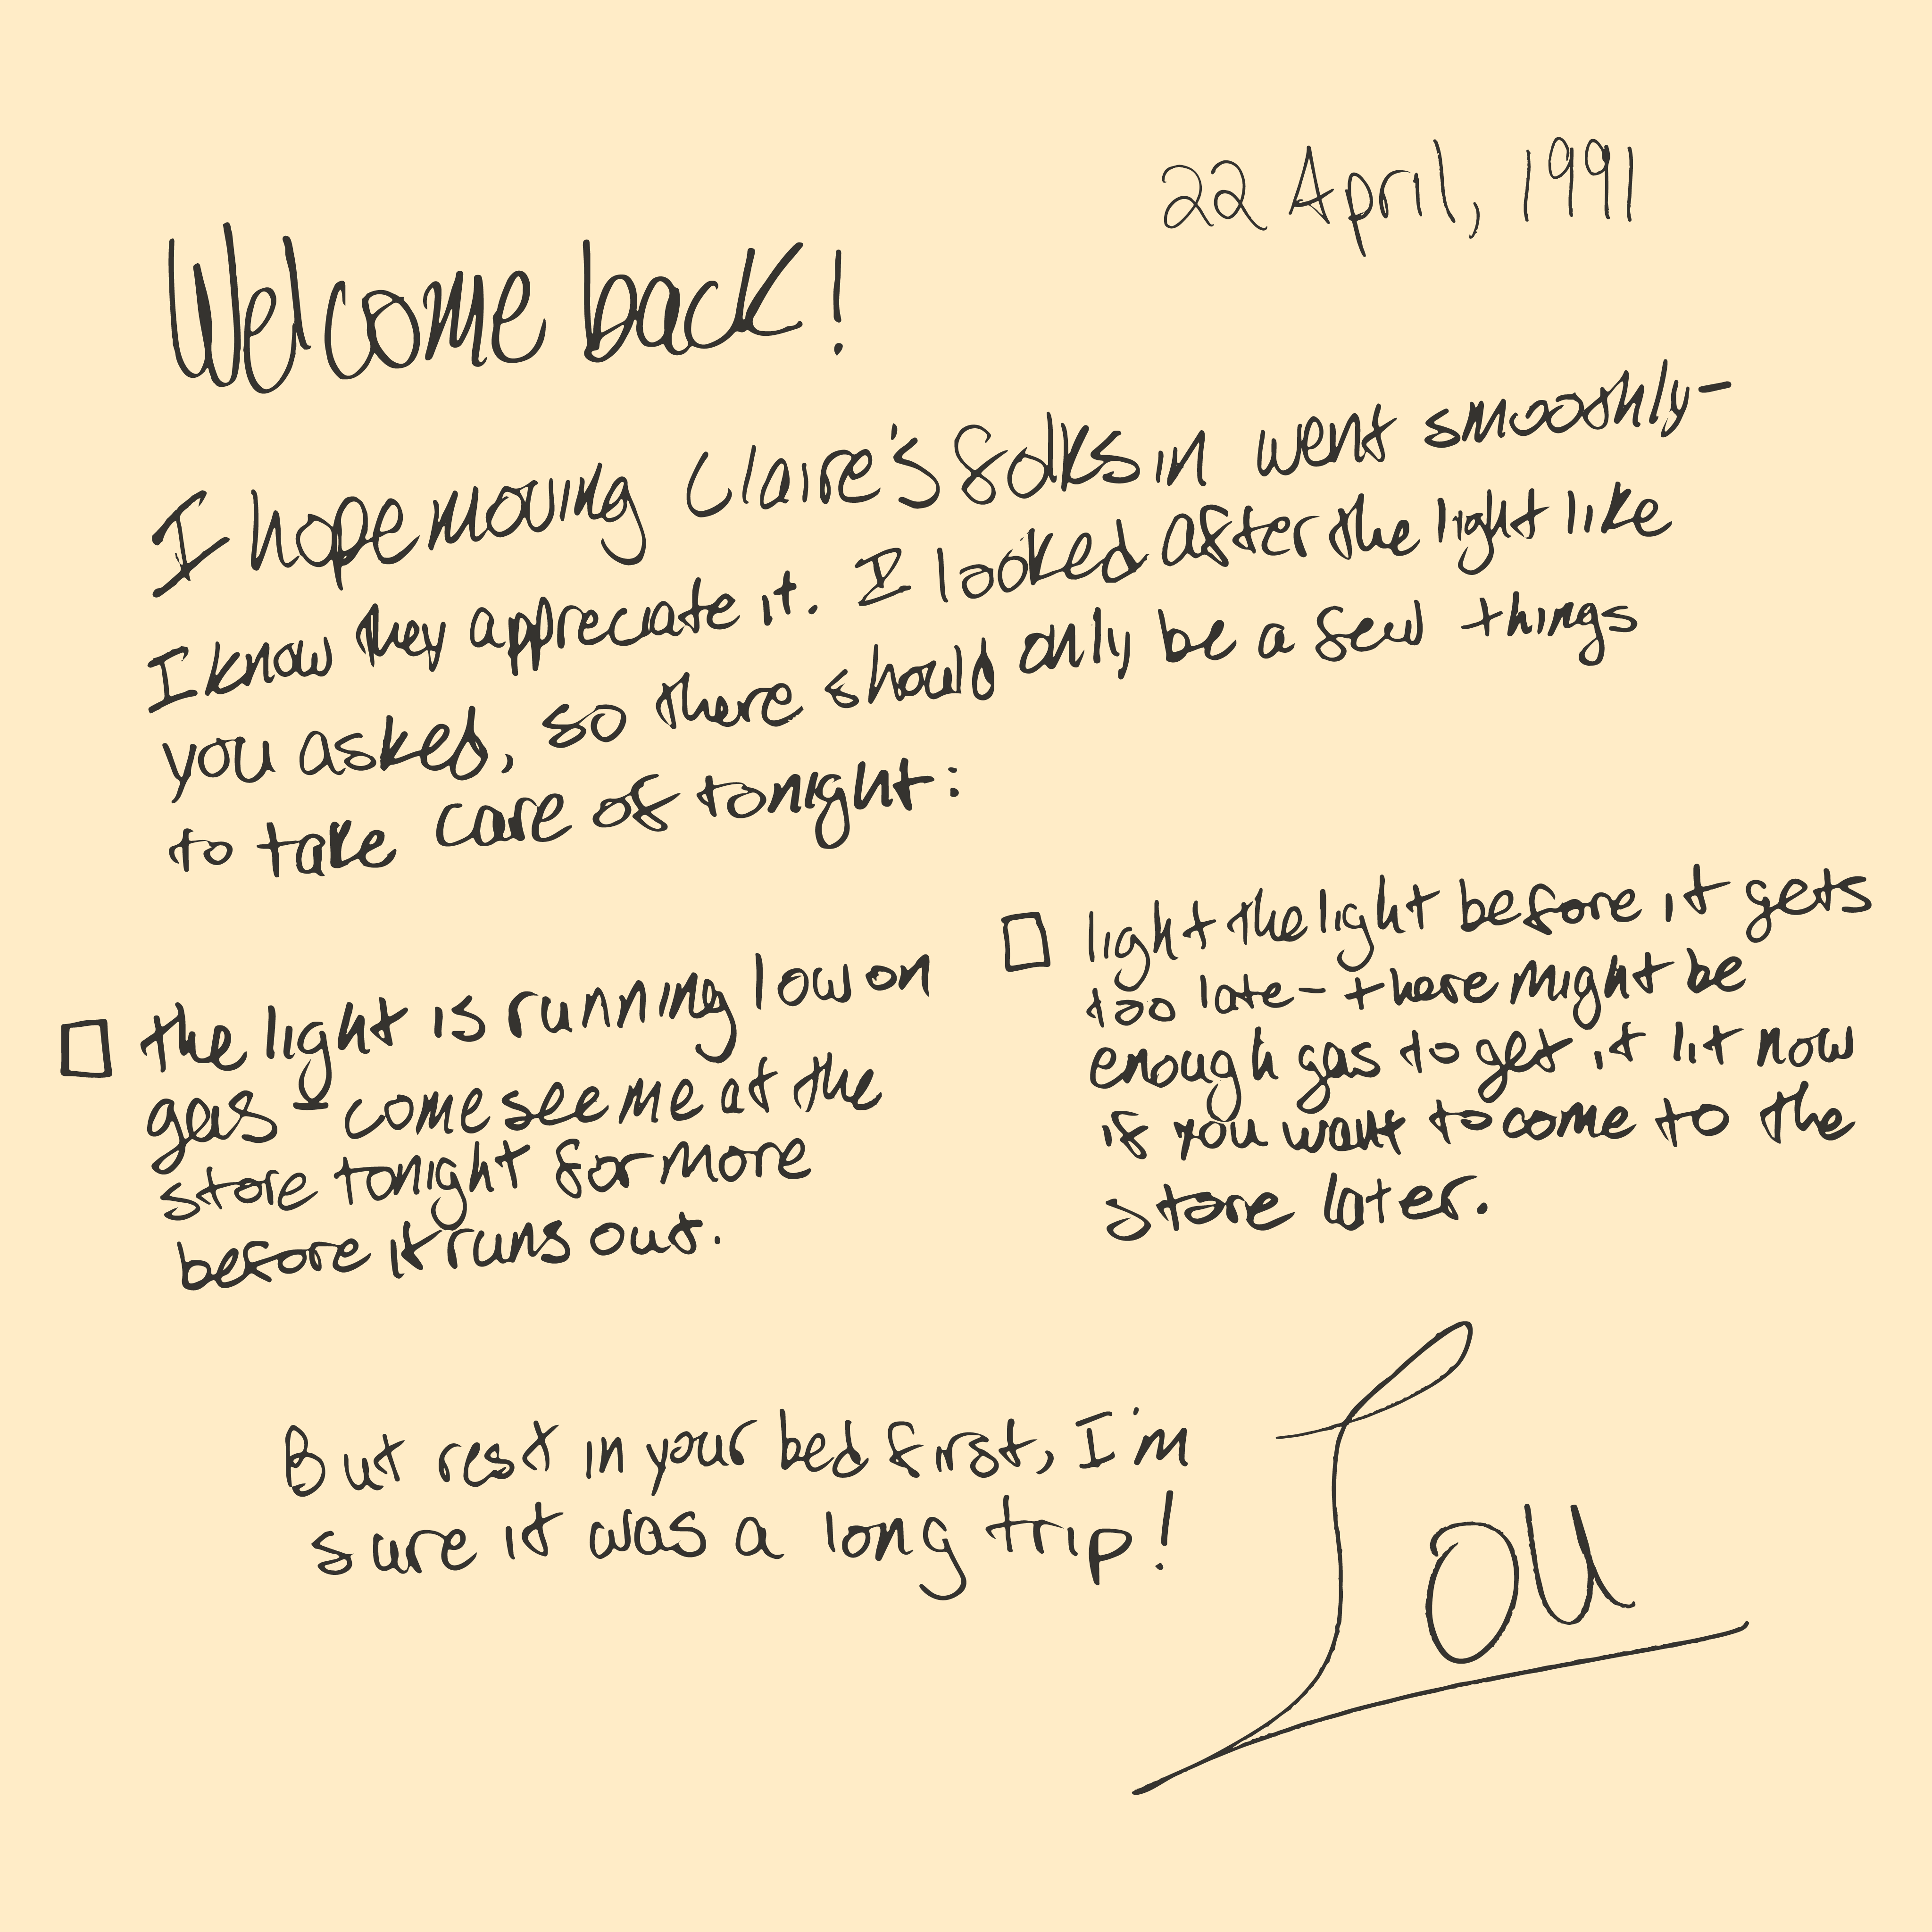 22 April, 1991
Welcome back!
I hope moving Claire's folks in went smoothly-
I know they appreciate it. I looked after the light like
you asked, so there should only be a few things
to take care of tonight:
The light is running low on
gas - come see me at the
store tonight for more
before it runs out.
light the light before it gets
too late - there might be
enough gas to get it lit now
if you want to come to the
store later.
But rest in your bed first, I'm
sure it was a long trip!
Lou